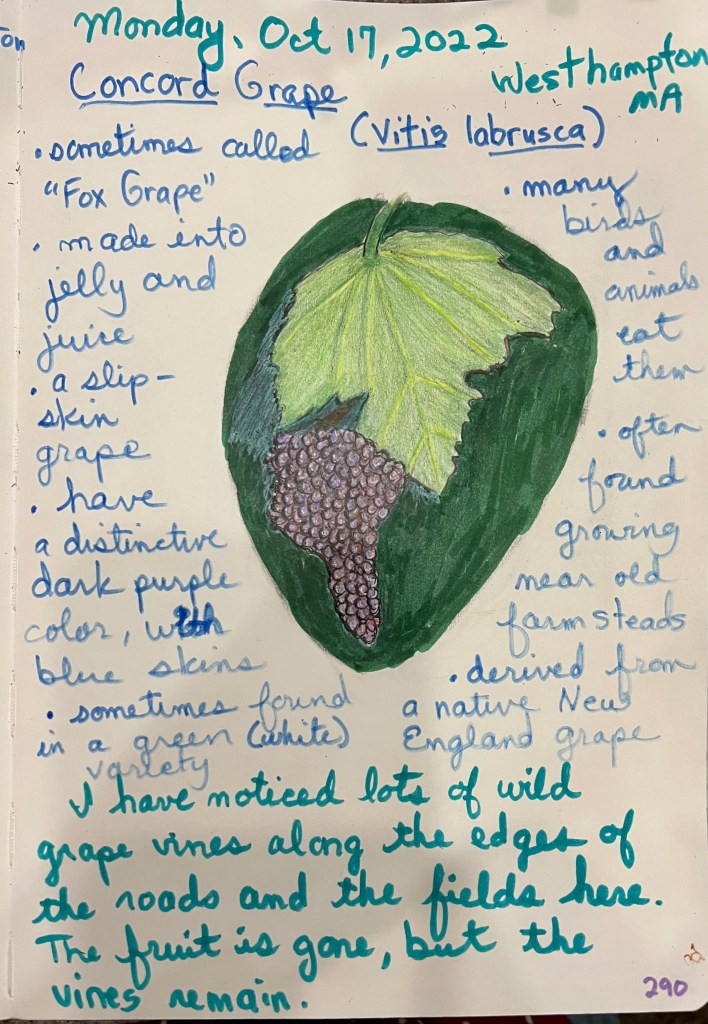 Monday, Oct 17, 2022
Westhampton
MA
Concord Grape
(Vitis labrusca)
• sometimes called
"Fox Grape"
• made into
jelly and
juice
• a slip-
skin
grape
• have
a distinctive
dark purple
color, with
blue skins
• sometimes found
in a green (white)
variety
• many
birds
and
animals
eat
them
• often
found
growing
near old
farmsteads
• derived from
a native New
England grape
I have noticed lots of wild
grape vines along the edges of
the roads and the fields here.
The fruit is gone, but the
vines remain.
290